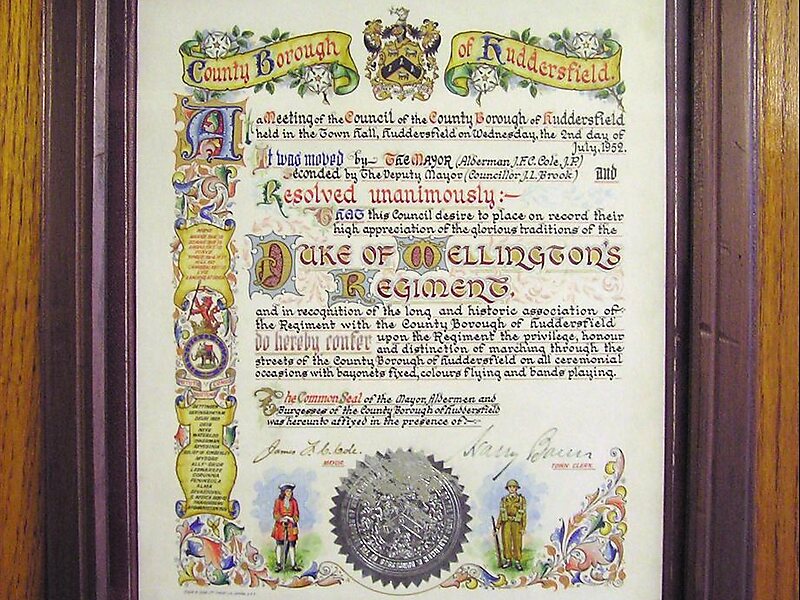 County Borough of Huddersfield.
At a Meeting of the Council of the County Borough of Huddersfield
held in the Town Hall, Huddersfield on Wednesday, the 2nd day of
July, 1952.
It was moved by THE MAYOR (Alderman J.F.C. Cole, J.P.)
Seconded by The Deputy Mayor (Councillor J.L. Brook) and
Resolved unanimously:-
THAT this Council desire to place on record their
high appreciation of the glorious traditions of the
DUKE OF WELLINGTON'S
REGIMENT,
and in recognition of the long and historic association of
the Regiment with the County Borough of Huddersfield
do hereby confer upon the Regiment the privilege, honour
and distinction of marching through the
streets of the County Borough of Huddersfield on all ceremonial
occasions with bayonets fixed, colours flying and bands playing.
The Common Seal of the Mayor, Aldermen and
Burgesses of the County Borough of Huddersfield
was hereunto affixed in the presence of
James F. C. Cole.
MAYOR.
Harry Bann
TOWN CLERK.
DETTINGEN
SERINGAPATAM
DELHI 1803
DEIG
NIVE
WATERLOO
SEVASTOPOL
RELIEF OF KIMBERLEY
MYSORE
ALLY-GHUR
LESWARREE
CORUNNA
PENINSULA
ALMA